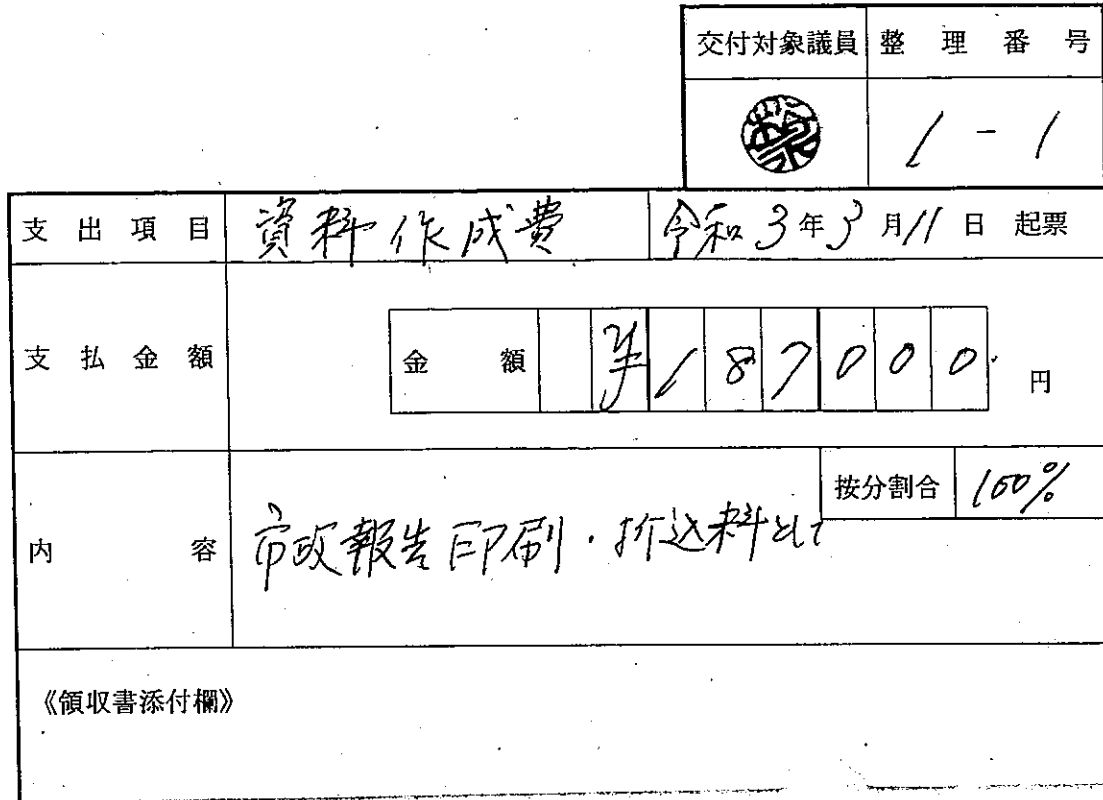 交付対象議員 整理番号
1-1
支出項目 資料作成費 令和3年3月11日 起票
支払金額 金額 ¥187000 円
按分割合 100%
内容 市政報告印刷・折込料として
《領収書添付欄》